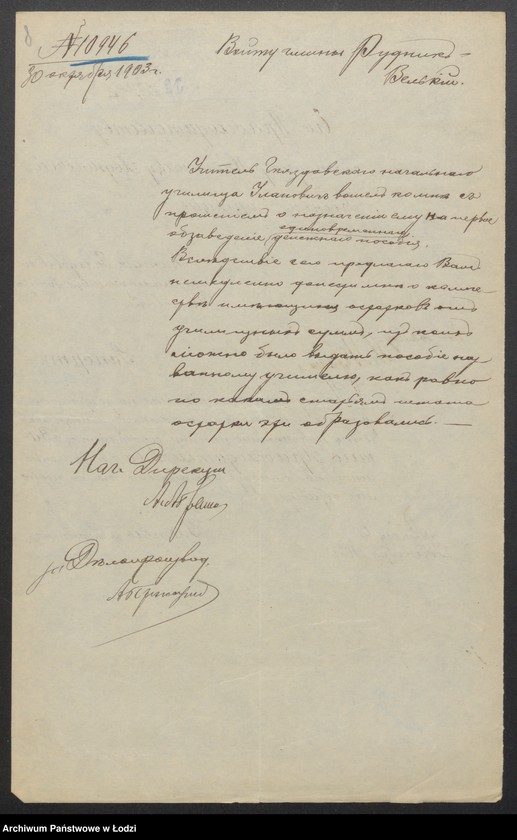 № 10946
30 октября 1903 г.
8
Войту гмины Рудники
Велькій.
Учитель начальнаго
училища Улановичъ вошелъ ко мнѣ съ
прошеніемъ о назначеніи ему на первое
единовременнаго
обзаведеніе денежнаго пособія.
Вслѣдствіе сего предлагаю Вамъ
немедленно донести мнѣ о количе-
ствѣ имѣющихся остатковъ отъ
училищныхъ суммъ, изъ коихъ
можно было выдать пособіе наз-
ванному учителю, какъ равно
по какимъ статьямъ штата
остатки эти образовались. —
Нач. Дирекціи
за Дѣлопроизвод.
Archiwum Państwowe w Łodzi